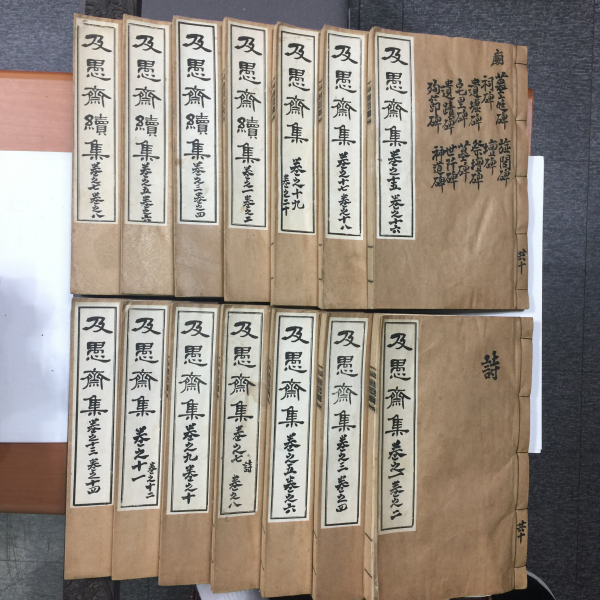 及愚齋集 卷之十五 卷之十六
廟
墓庭碑 旌閭碑
祠碑 壇碑
遺墟碑 祭壇碑
遺蹟碑 世阡碑
殉節碑 神道碑
共十
及愚齋集 卷之十七 卷之十八
及愚齋集 卷之十九
卷之二十
及愚齋續集 卷之一 卷之二
及愚齋續集 卷之三 卷之四
及愚齋續集 卷之五 卷之六
及愚齋續集 卷之七 卷之八
及愚齋集 卷之一 卷之二
詩
共十
及愚齋集 卷之三 卷之四
及愚齋集 卷之五 卷之六
及愚齋集 卷之七 詩
卷之八
及愚齋集 卷之九 卷之十
及愚齋集 卷之十一
卷之十二
及愚齋集 卷之十三 卷之十四